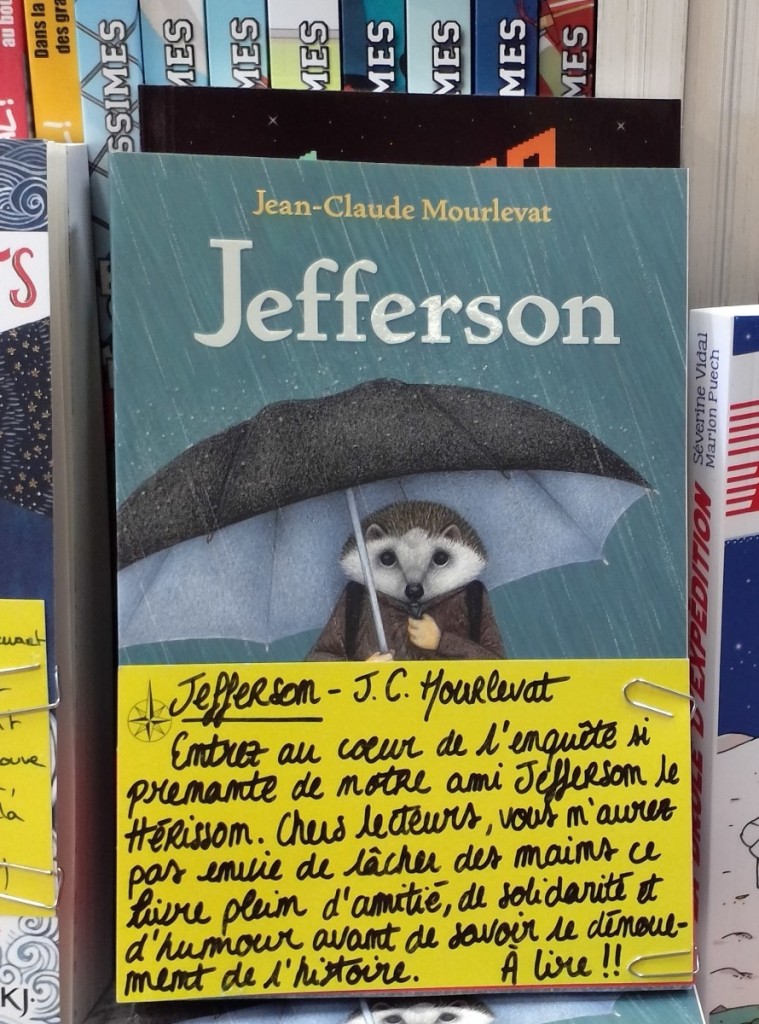 au bou
Dans la
des gra
SSIMES
MES
MES
MES
MES
MES
MES
MES
Jean-Claude Mourlevat
Jefferson
Jefferson - J.C. Mourlevat
Entrez au cœur de l'enquête si
prenante de notre ami Jefferson le
Hérisson. Chers lecteurs, vous n'aurez
pas envie de lâcher des mains ce
livre plein d'amitié, de solidarité et
d'humour avant de savoir le dénoue-
ment de l'histoire. À lire !!
Séverine Vidal
Marion Puech
DRÔLE D'EXPÉDITION
KJ.